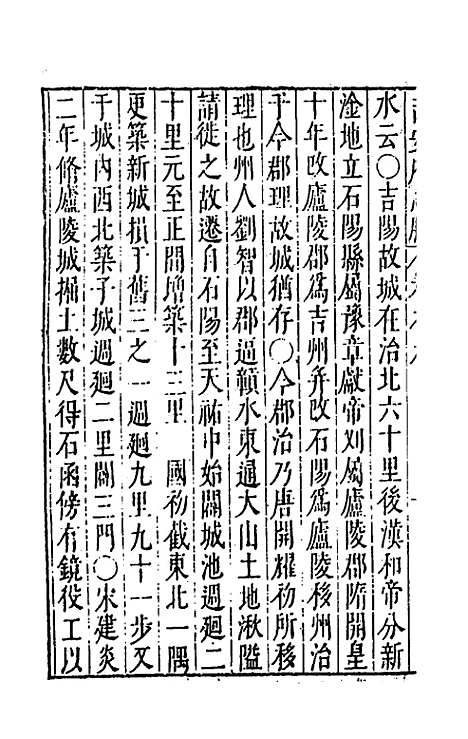 水云○吉陽故城在治北六十里後漢和帝分新
淦地立石陽縣屬豫章獻帝刘屬廬陵郡隋開皇
十年改廬陵郡爲吉州并改石陽爲廬陵移州治
于今郡理故城猶存○今郡治乃唐開耀初所移
理也州人劉智以郡逼贛水東通大山土地湫隘
請徙之故遷自石陽至天祐中始闢城池週廻二
十里元至正間增築十三里　國初截東北一隅
更築新城損于舊三之一週廻九里九十一步又
于城內西北築子城週廻二里闢三門○宋建炎
二年脩廬陵城掘土數尺得石函傍有鏡役工以